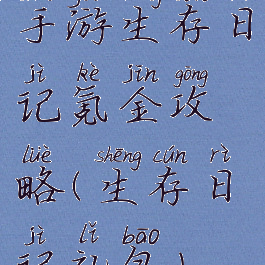 手游生存日
jì kè jīn gōng
记氪金攻
lüè shēng cún rì
略(生存日
jì lǐ bāo
记礼包)